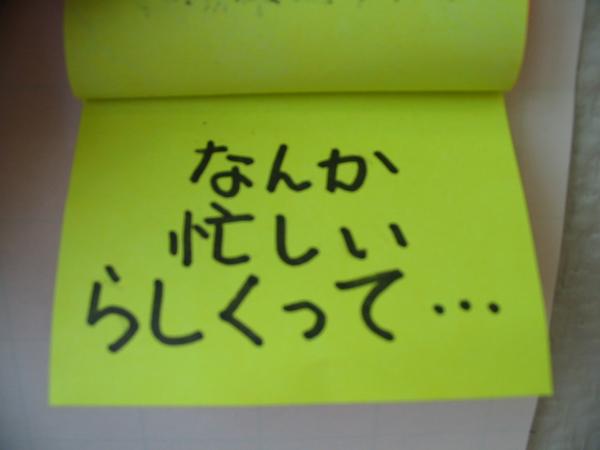 なんか
忙しい
らしくって…